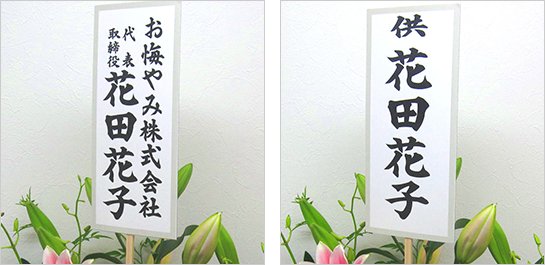 お悔やみ株式会社
代表
取締役
花田花子
供
花田花子